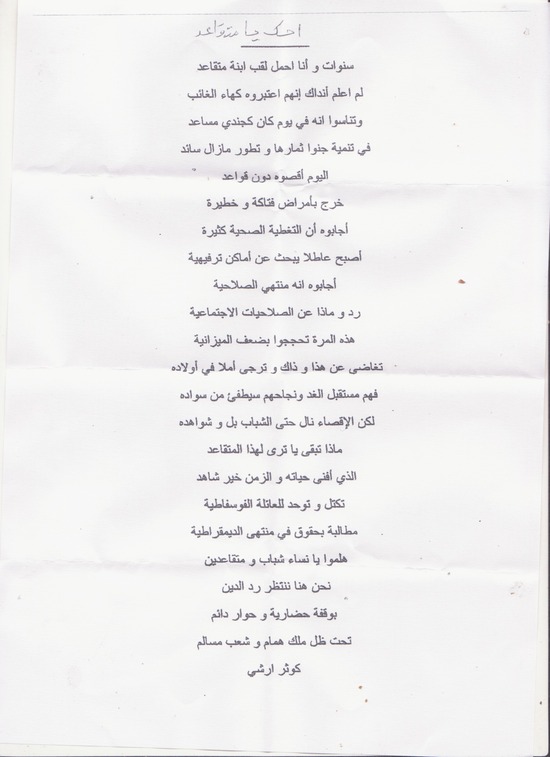 احك يا متقاعد
سنوات و أنا احمل لقب ابنة متقاعد
لم اعلم أنذاك إنهم اعتبروه كهاء الغائب
وتناسوا انه في يوم كان كجندي مساعد
في تنمية جنوا ثمارها و تطور مازال سائد
اليوم أقصوه دون قواعد
خرج بأمراض فتاكة و خطيرة
أجابوه أن التغطية الصحية كثيرة
أصبح عاطلا يبحث عن أماكن ترفيهية
أجابوه انه منتهي الصلاحية
رد و ماذا عن الصلاحيات الاجتماعية
هذه المرة تحججوا بضعف الميزانية
تغاضى عن هذا و ذاك و ترجى أملا في أولاده
فهم مستقبل الغد ونجاحهم سيطفئ من سواده
لكن الإقصاء نال حتى الشباب بل و شواهده
ماذا تبقى يا ترى لهذا المتقاعد
الذي أفنى حياته و الزمن خير شاهد
تكتل و توحد للعائلة الفوسفاطية
مطالبة بحقوق في منتهى الديمقراطية
هلموا يا نساء شباب و متقاعدين
نحن هنا ننتظر رد الدين
بوقفة حضارية و حوار دائم
تحت ظل ملك همام و شعب مسالم
كوثر ارشي